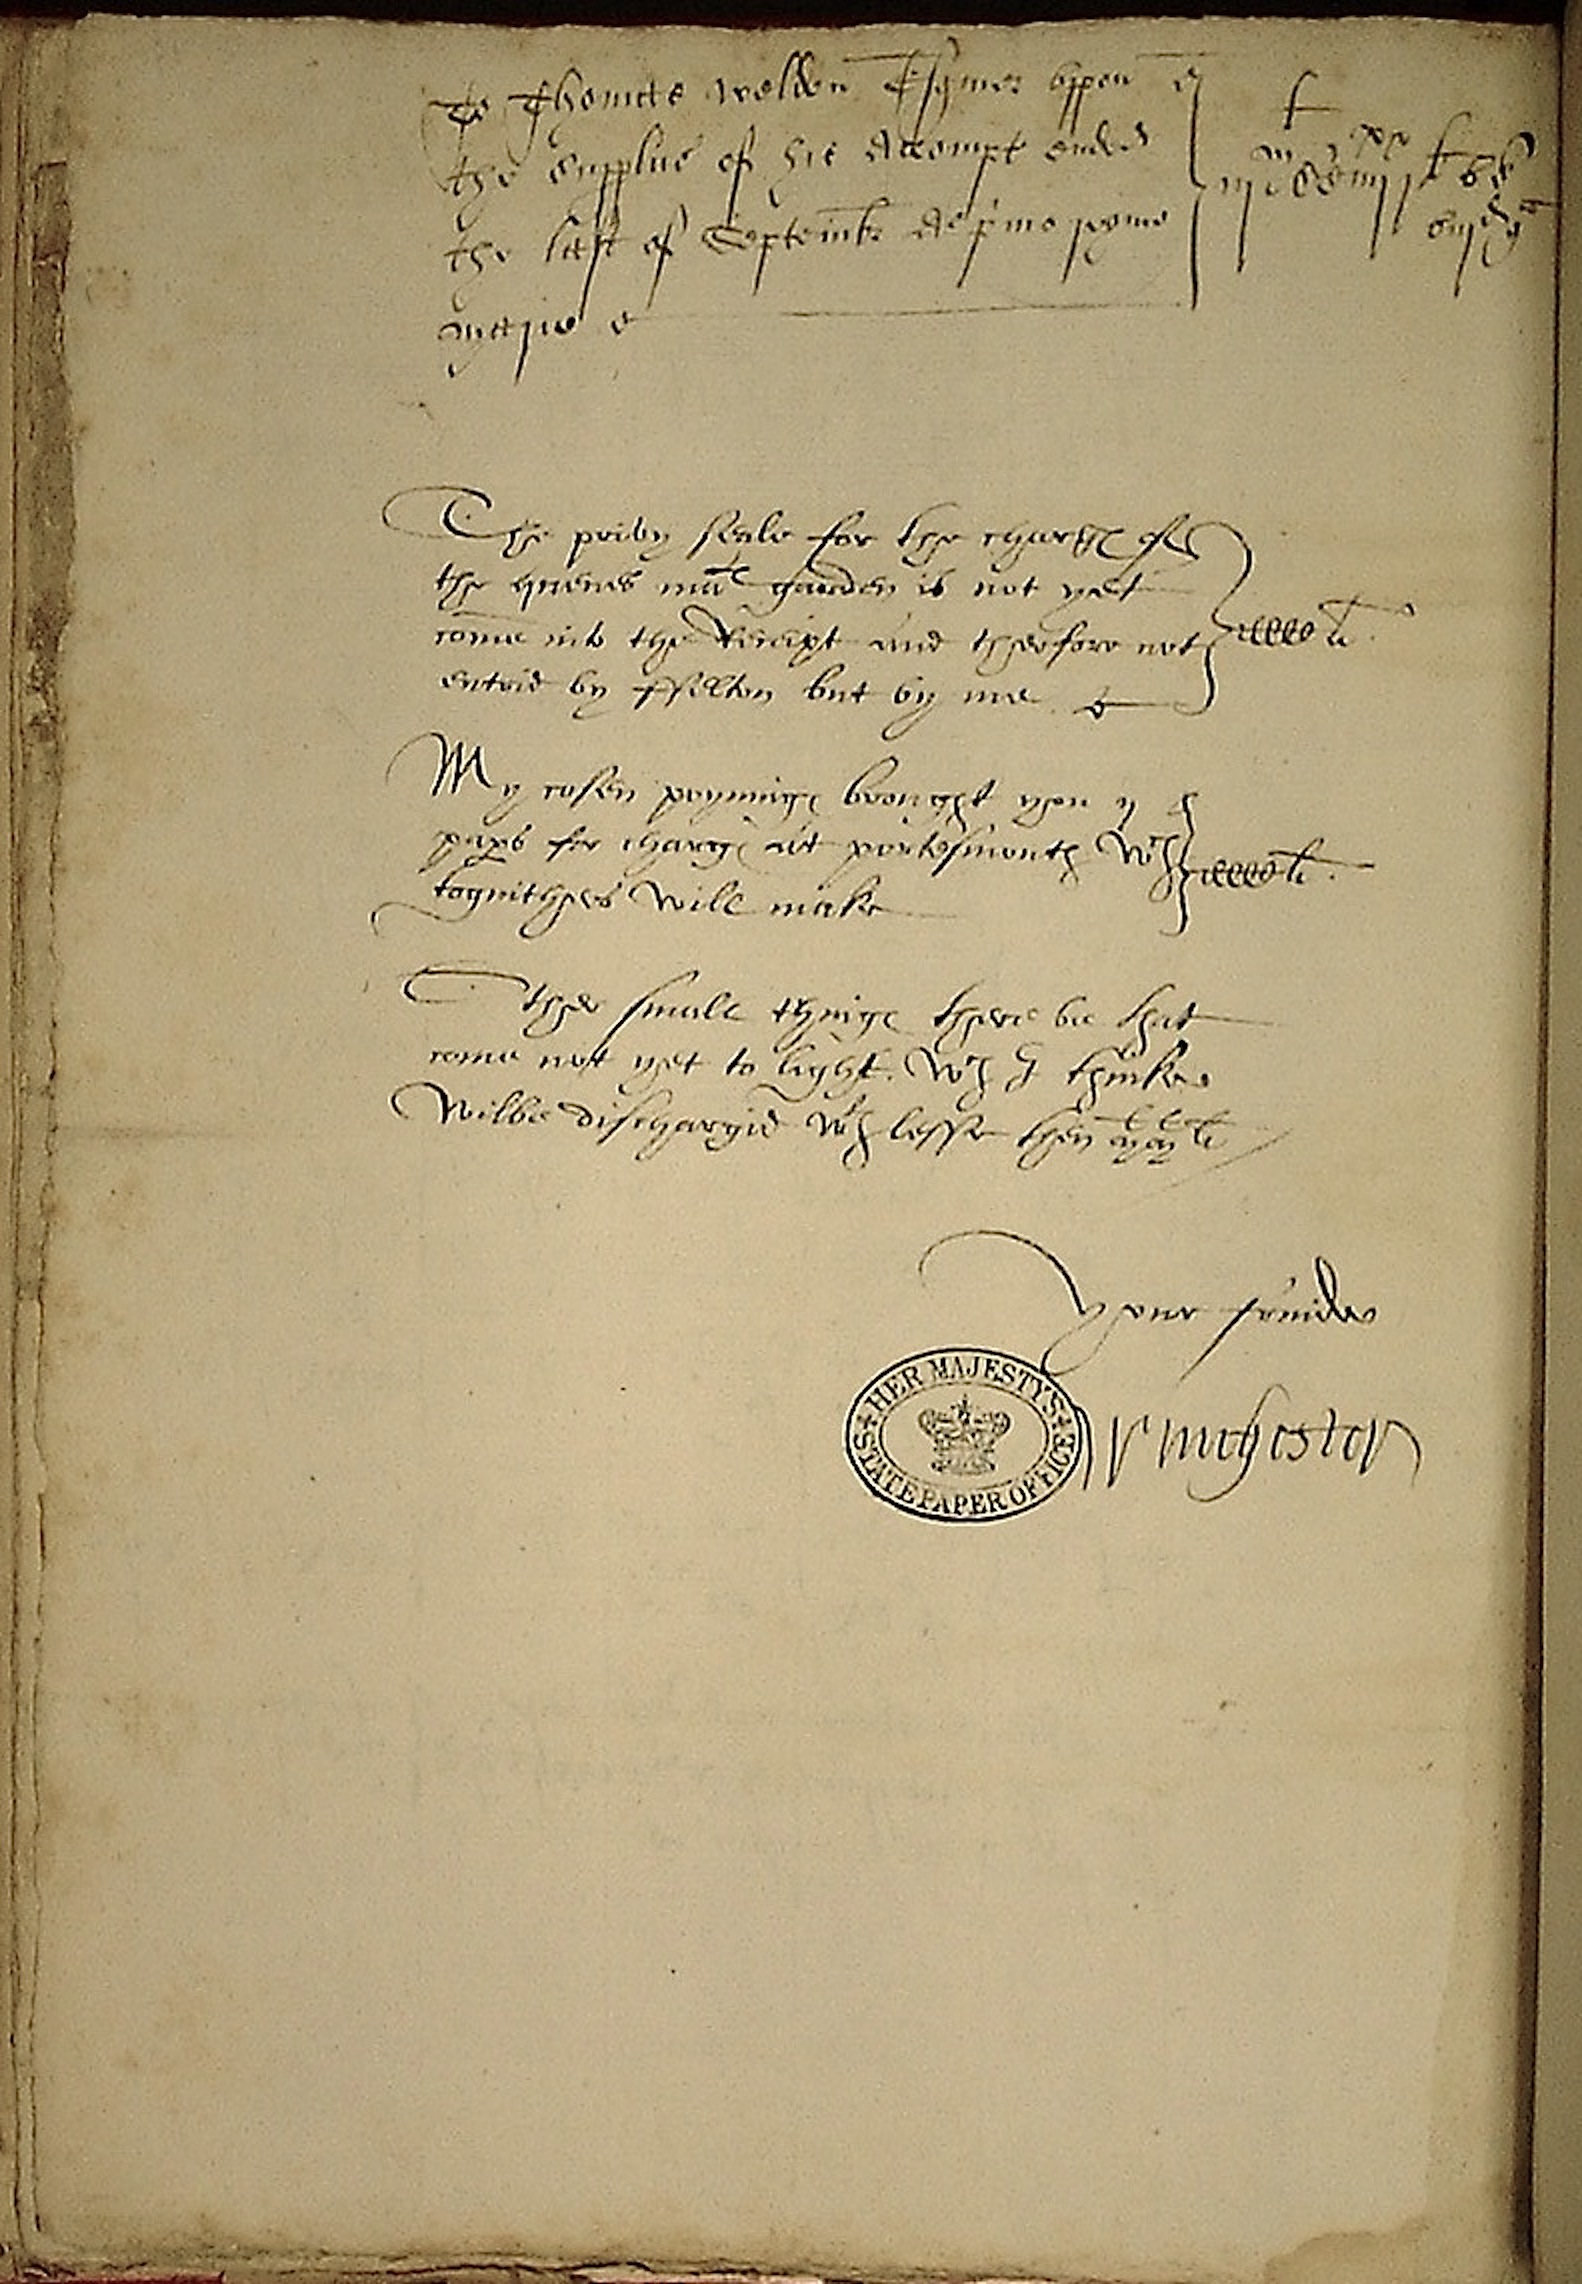 To Thomas weldon Esquier vppon
the surplus of his Accompt ended
the last of Septembr Ao primo regine
marie
The privy seale for the charge of
the quenes mates garden is not yet
come into the Receipt and therfore not
entrid by ffelton but by me
ccccli
My cosen poyninges brought you ij
paps for charges at portesmouth wch
toguithers will make
ccccli
Other small thinges there be that
come not yet to light. wch I thinke
wilbe dischargid wth lesse then li
Your frende
Winchester
HER MAJESTY'S
STATE PAPER OFFICE